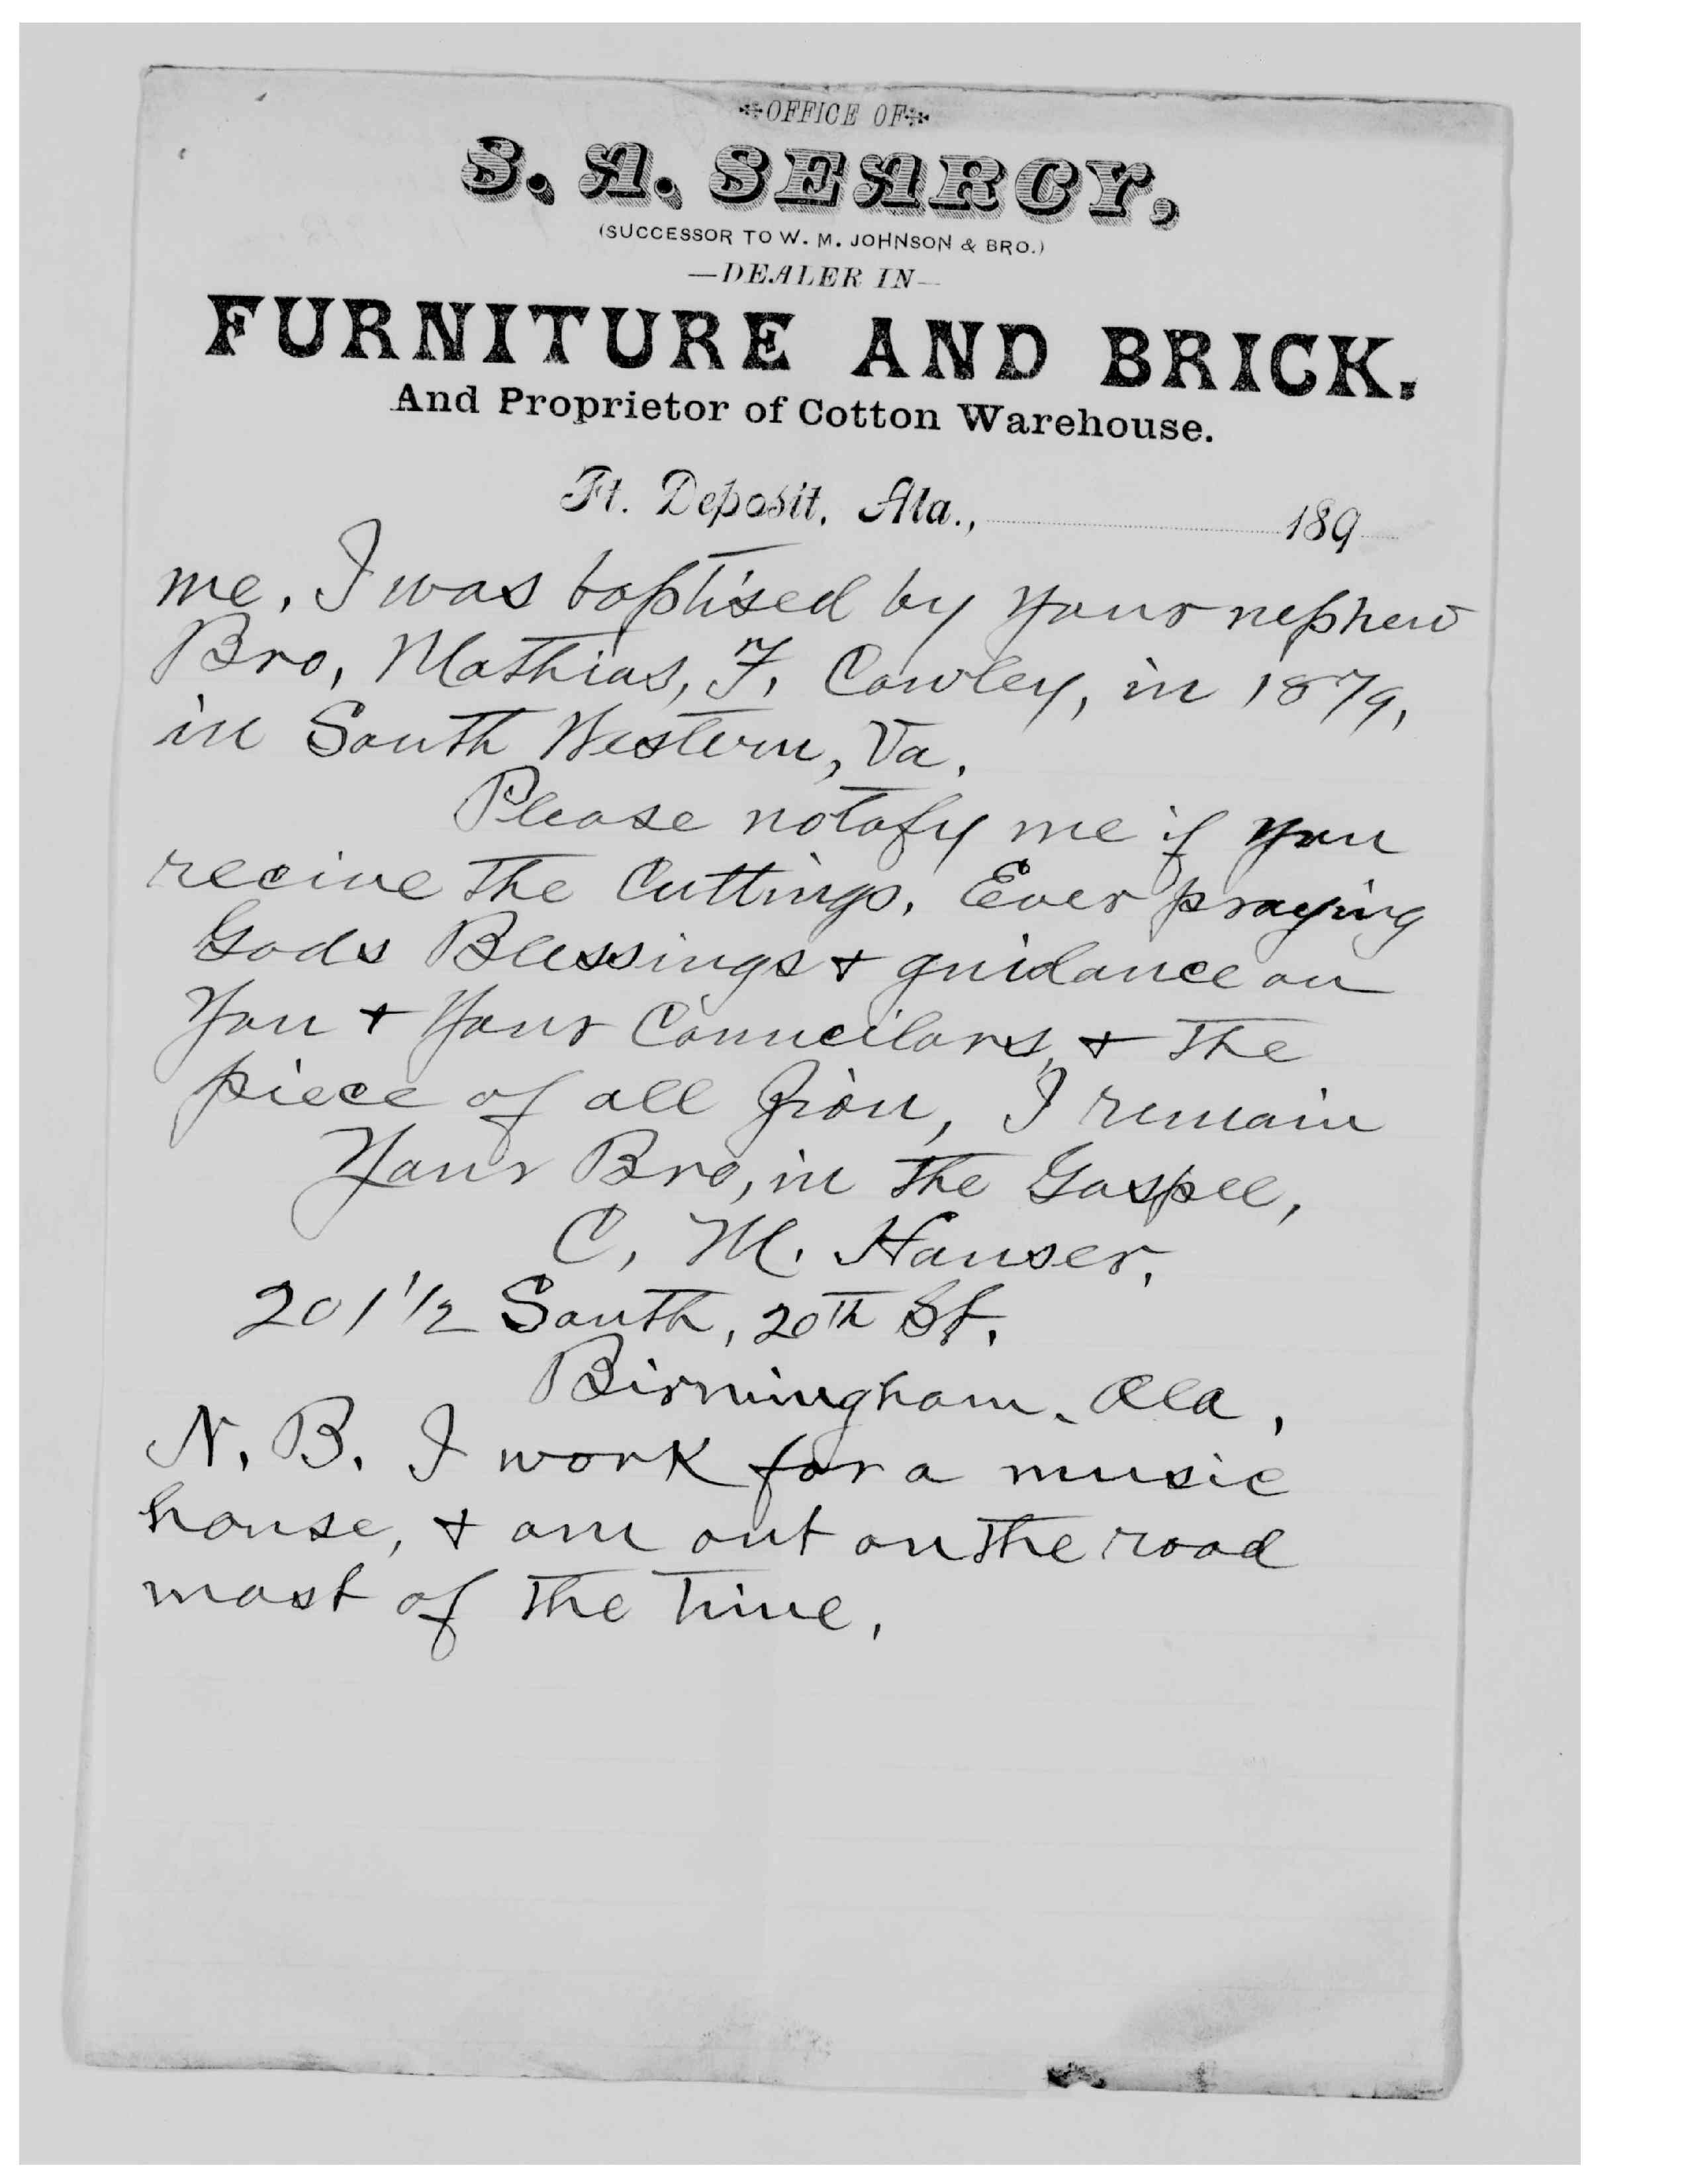 OFFICE OF
S. A. SEARCY,
(SUCCESSOR TO W. M. JOHNSON & BRO.)
—DEALER IN—
FURNITURE AND BRICK,
And Proprietor of Cotton Warehouse.
Ft. Deposit, Ala., 189
me. I was baptised by your nephew
Bro, Mathias, F, Cowley, in 1879,
in South Western, Va.
Please notafy me if you
recive the Cuttings. Ever praying
Gods Blessings + guidance on
You + Your Councilors, + the
piece of all Zion, I remain
Your Bro, in the Gospel,
C, M. Hauser,
201 1/2 South, 20th St,
Birmingham, Ala,
N. B. I work for a music
house, + am out on the road
most of the time,